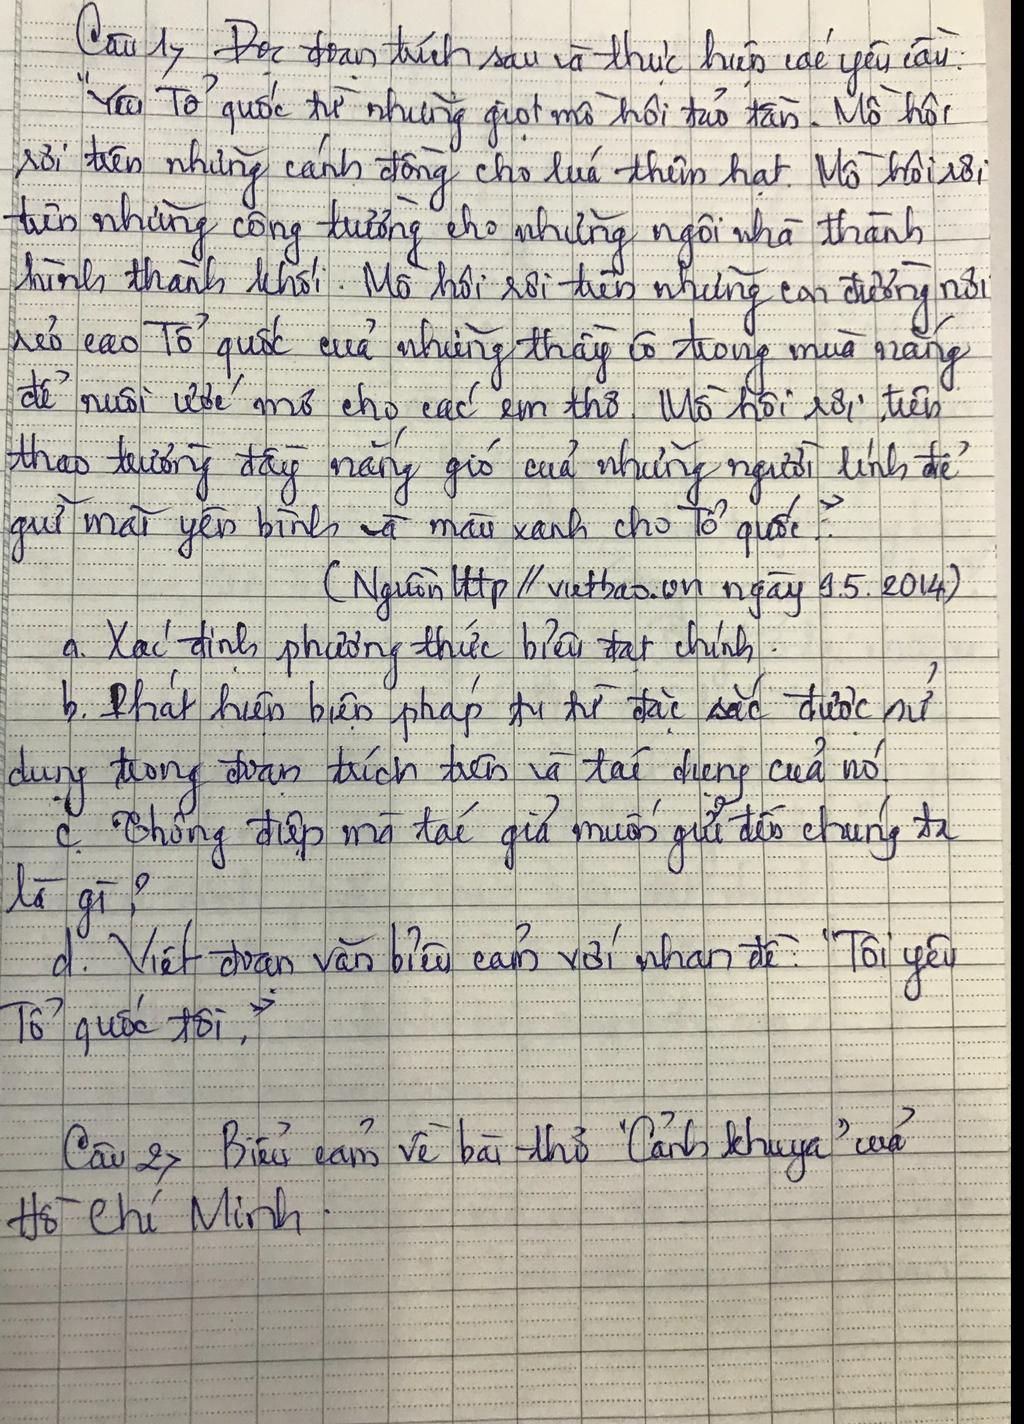 Câu 1, Đọc đoạn trích sau và thực hiện các yêu cầu:
"Yêu Tổ quốc từ những giọt mồ hôi tảo tần. Mồ hôi
rơi trên những cánh đồng cho lúa thêm hạt. Mồ hôi rơi
trên những công trường cho những ngôi nhà thành
hình thành khối. Mồ hôi rơi trên những con đường nơi
rẻo cao Tổ quốc của những thầy cô trong mùa nắng
để nuôi ước mơ cho các em thơ. Mồ hôi rơi trên
thao trường đầy nắng gió của những người lính để
giữ mãi yên bình và màu xanh cho Tổ quốc."
(Nguồn http//vietbao.vn ngày 9.5.2014)
a. Xác định phương thức biểu đạt chính.
b. Phát hiện biện pháp tu từ đặc sắc được sử
dụng trong đoạn trích trên và tác dụng của nó
c. Thông điệp mà tác giả muốn gửi đến chúng ta
là gì?
d. Viết đoạn văn biểu cảm với nhan đề: "Tôi yêu
Tổ quốc tôi,"
Câu 2, Biểu cảm về bài thơ "Cảnh khuya" của
Hồ Chí Minh.